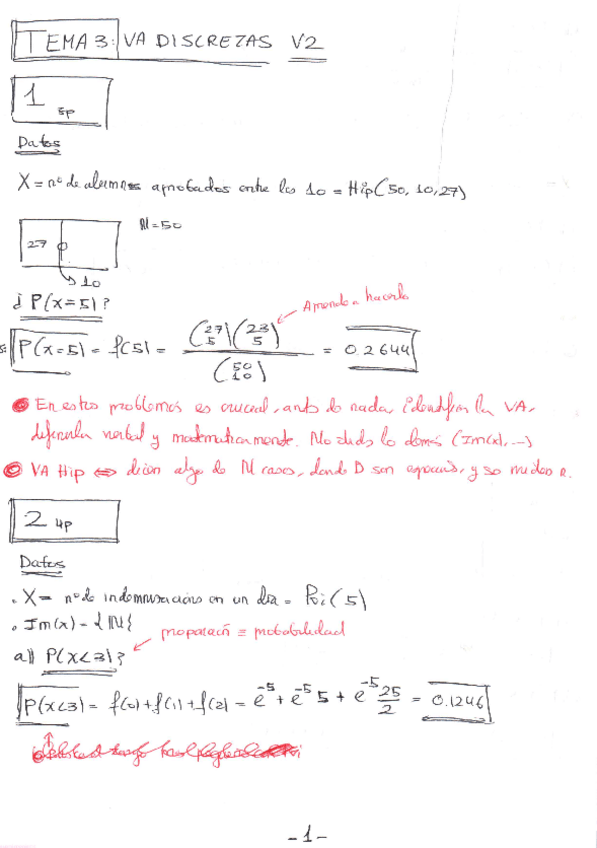 TEMA 3: VA DISCRETAS V2
1 5p
Datos
X = nº de alumnos aprobados entre los 10 = Hip(50, 10, 27)
27 M=50
10
¿ P(X=5)?
Aprende a hacerlo
P(X=5) = f(5) = (27 5)(23 5) / (50 10) = 0.2644
En estos problemas es crucial, antes de nada, identificar la VA,
definirla verbal y matemáticamente. No olvides lo demás (Im(x), ...)
VA Hip ⇔ dicen algo de N casos, donde D son especiales, y se miden n.
2 4p
Datos
. X = nº de indemnizaciones en un día = Poi(5)
. Im(x) = {IN}
proporción ≡ probabilidad
a)) P(X<3)?
P(X<3) = f(0)+f(1)+f(2) = e^-5 + e^-5 5 + e^-5 25/2 = 0.1246
-1-